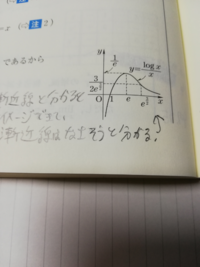 x (
2)
であるから
y
1/e
y=log x/x
3/2e^{3/2}
O 1 e e^{3/2} x
漸近線と分かる
イメージできて、
漸近線はなさそうと分かる。